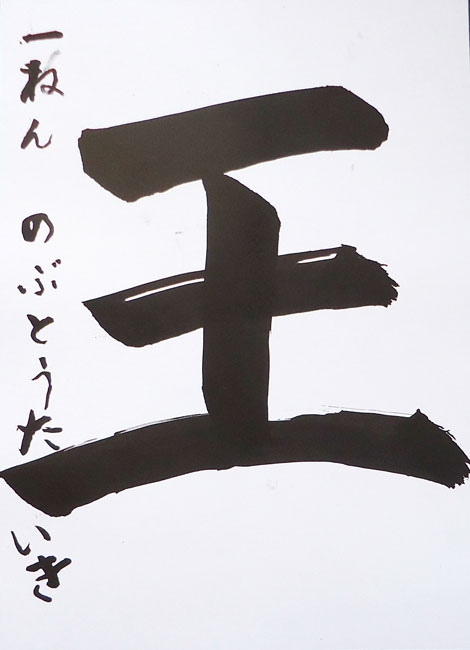 王
一ねん のぶとうた いき